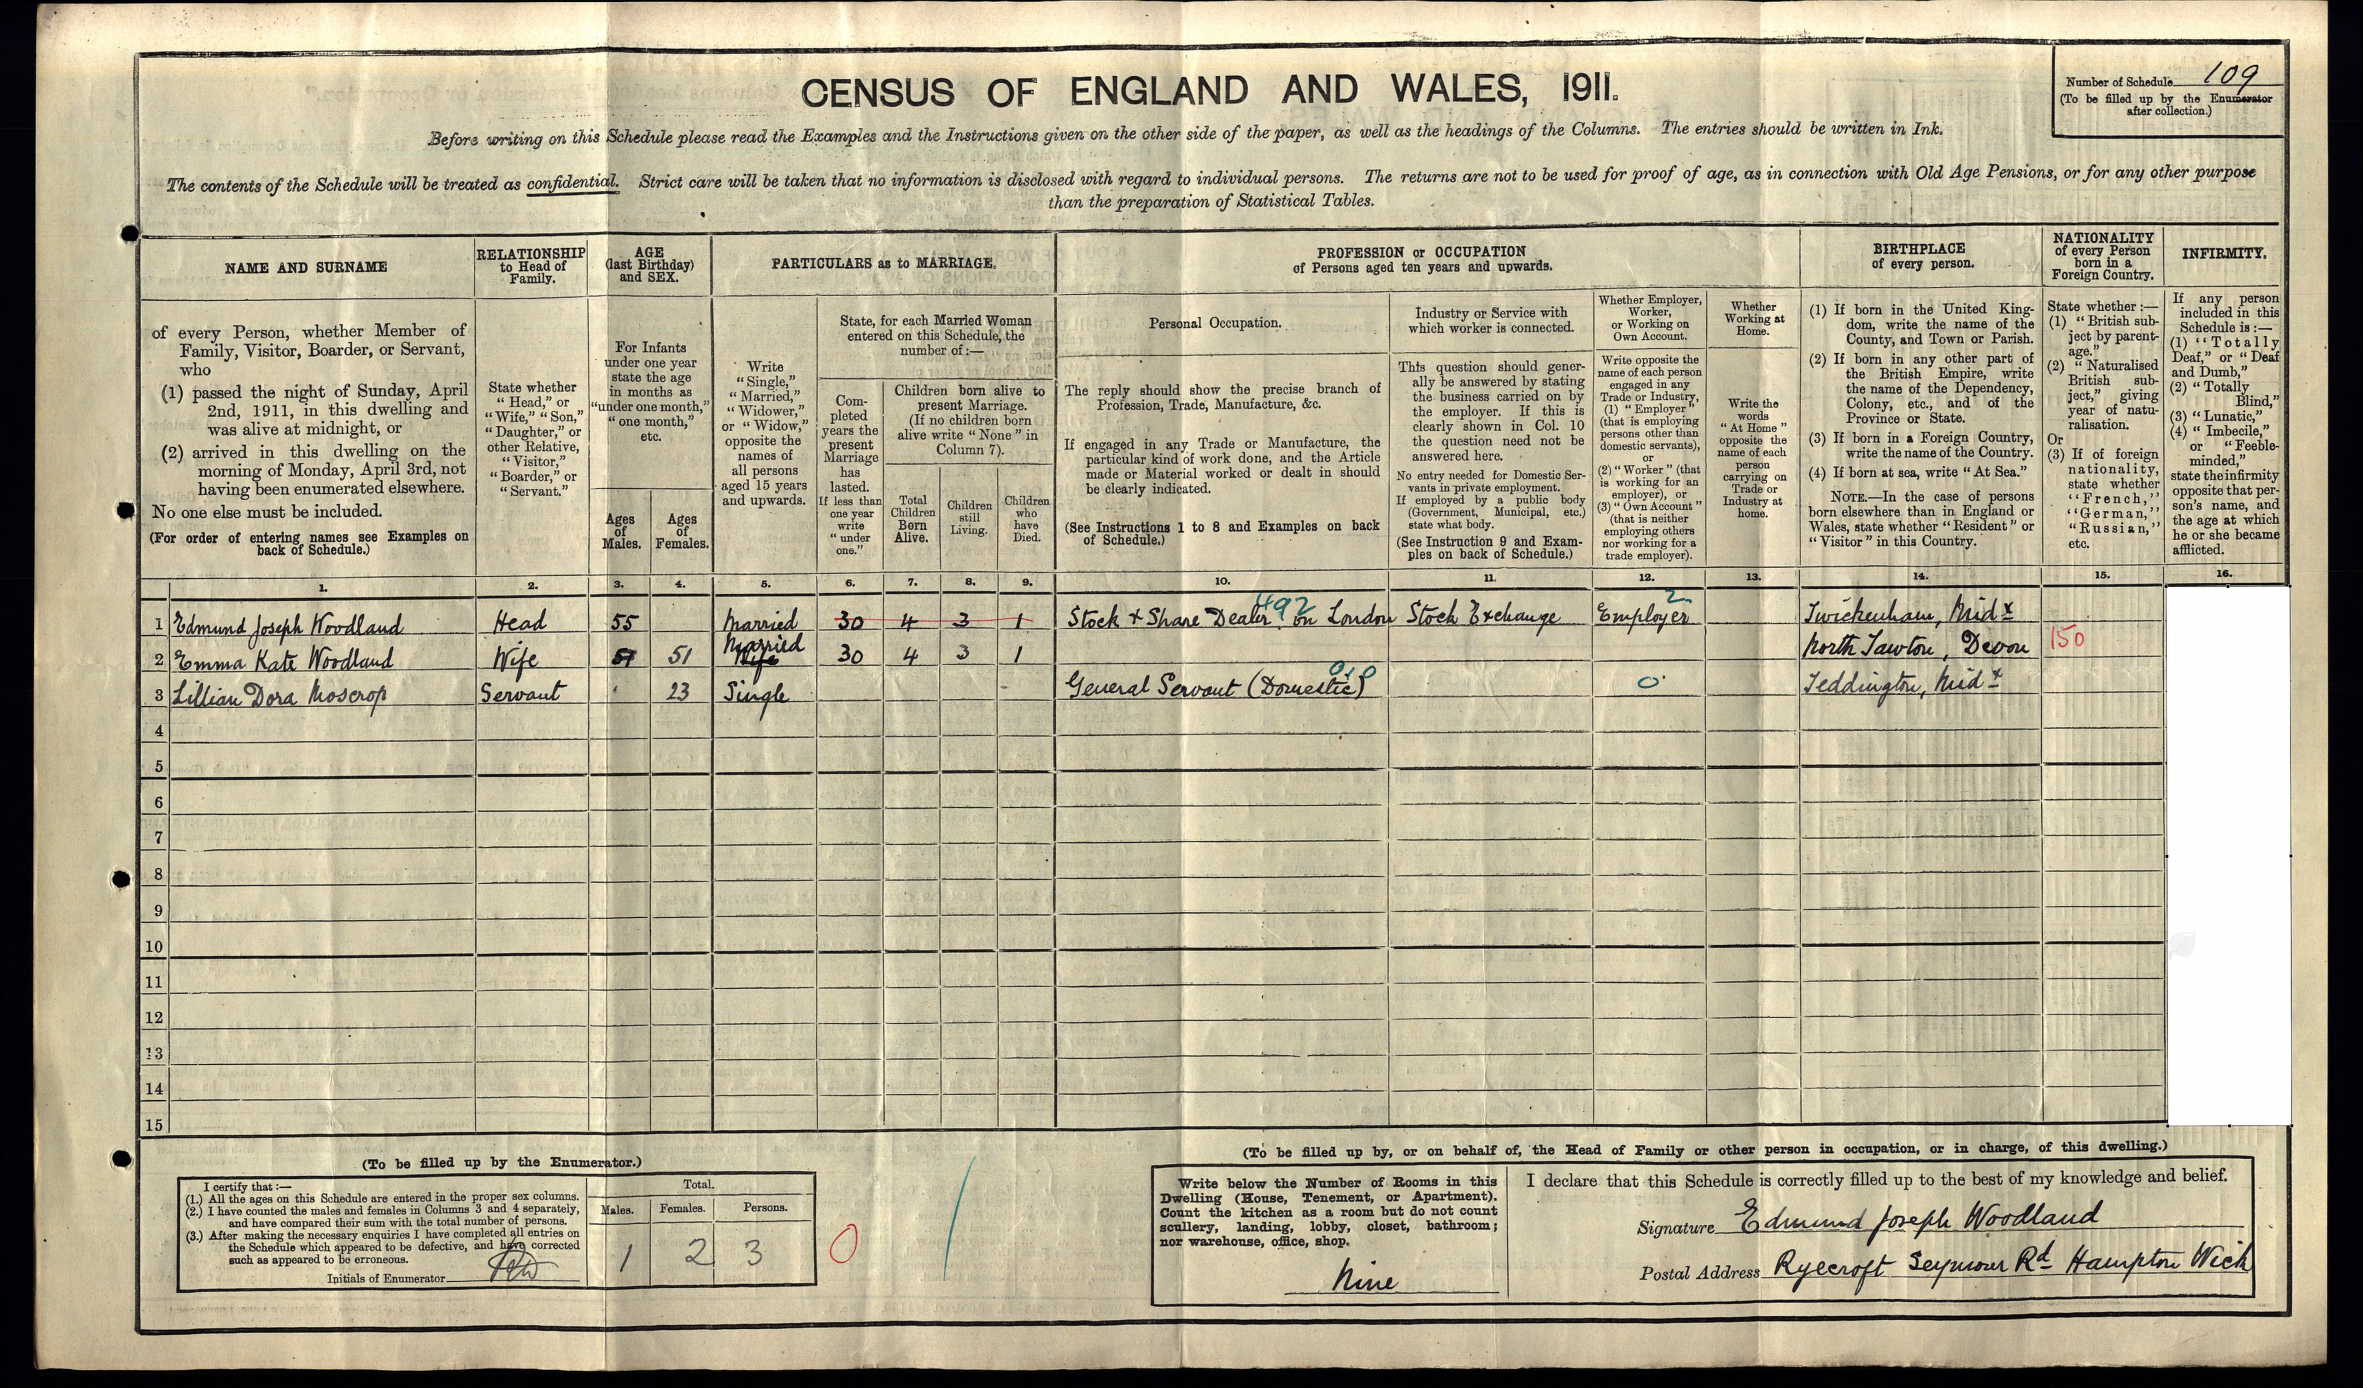 CENSUS OF ENGLAND AND WALES, 1911.
Number of Schedule 109
(To be filled up by the Enumerator
after collection.)
Before writing on this Schedule please read the Examples and the Instructions given on the other side of the paper, as well as the headings of the Columns. The entries should be written in Ink.
The contents of the Schedule will be treated as confidential. Strict care will be taken that no information is disclosed with regard to individual persons. The returns are not to be used for proof of age, as in connection with Old Age Pensions, or for any other purpose
than the preparation of Statistical Tables.
NAME AND SURNAME
RELATIONSHIP
to Head of
Family.
AGE
(last Birthday)
and SEX.
PARTICULARS as to MARRIAGE.
PROFESSION or OCCUPATION
of Persons aged ten years and upwards.
BIRTHPLACE
of every person.
NATIONALITY
of every Person
born in a
Foreign Country.
INFIRMITY.
of every Person, whether Member of
Family, Visitor, Boarder, or Servant,
who
(1) passed the night of Sunday, April
2nd, 1911, in this dwelling and
was alive at midnight, or
(2) arrived in this dwelling on the
morning of Monday, April 3rd, not
having been enumerated elsewhere.
No one else must be included.
(For order of entering names see Examples on
back of Schedule.)
State whether
"Head," or
"Wife," "Son,"
"Daughter," or
other Relative,
"Visitor,"
"Boarder," or
"Servant."
For Infants
under one year
state the age
in months as
"under one month,"
"one month,"
etc.
Ages
of
Males.
Ages
of
Females.
Write
"Single,"
"Married,"
"Widower,"
or "Widow,"
opposite the
names of
all persons
aged 15 years
and upwards.
State, for each Married Woman
entered on this Schedule, the
number of:—
Com-
pleted
years the
present
Marriage
has
lasted.
If less than
one year
write
"under
one."
Children born alive to
present Marriage.
(If no children born
alive write "None" in
Column 7).
Total
Children
Born
Alive.
Children
still
Living.
Children
who
have
Died.
Personal Occupation.
The reply should show the precise branch of
Profession, Trade, Manufacture, &c.
If engaged in any Trade or Manufacture, the
particular kind of work done, and the Article
made or Material worked or dealt in should
be clearly indicated.
(See Instructions 1 to 8 and Examples on back
of Schedule.)
Industry or Service with
which worker is connected.
This question should gener-
ally be answered by stating
the business carried on by
the employer. If this is
clearly shown in Col. 10
the question need not be
answered here.
No entry needed for Domestic Ser-
vants in private employment.
If employed by a public body
(Government, Municipal, etc.)
state what body.
(See Instruction 9 and Exam-
ples on back of Schedule.)
Whether Employer,
Worker,
or Working on
Own Account.
Write opposite the
name of each person
engaged in any
Trade or Industry,
(1) "Employer"
(that is employing
persons other than
domestic servants),
or
(2) "Worker" (that
is working for an
employer), or
(3) "Own Account"
(that is neither
employing others
nor working for a
trade employer).
Whether
Working at
Home.
Write the
words
"At Home"
opposite the
name of each
person
carrying on
Trade or
Industry at
home.
(1) If born in the United King-
dom, write the name of the
County, and Town or Parish.
(2) If born in any other part of
the British Empire, write
the name of the Dependency,
Colony, etc., and of the
Province or State.
(3) If born in a Foreign Country,
write the name of the Country.
(4) If born at sea, write "At Sea."
NOTE.—In the case of persons
born elsewhere than in England or
Wales, state whether "Resident" or
"Visitor" in this Country.
State whether:—
(1) "British sub-
ject by parent-
age."
(2) "Naturalised
British sub-
ject," giving
year of natu-
ralisation.
Or
(3) If of foreign
nationality,
state whether
"French,"
"German,"
"Russian,"
etc.
If any person
included in this
Schedule is:—
(1) "Totally
Deaf," or "Deaf
and Dumb,"
(2) "Totally
Blind,"
(3) "Lunatic,"
(4) "Imbecile,"
or "Feeble-
minded,"
state the infirmity
opposite that per-
son's name, and
the age at which
he or she became
afflicted.
1. 2. 3. 4. 5. 6. 7. 8. 9. 10. 11. 12. 13. 14. 15. 16.
492 2
1 Edmund Joseph Woodland Head 55 Married 30 4 3 1 Stock & Share Dealer on London Stock Exchange Employer Twickenham, Midx
Married
2 Emma Kate Woodland Wife 51 51 Wife 30 4 3 1 North Tawton, Devon 150
3 Lillian Dora Moscrop Servant 23 Single General Servant (Domestic) 0 Teddington, Midx
4
5
6
7
8
9
10
11
12
13
14
15
(To be filled up by the Enumerator.)
I certify that:—
(1.) All the ages on this Schedule are entered in the proper sex columns.
(2.) I have counted the males and females in Columns 3 and 4 separately,
and have compared their sum with the total number of persons.
(3.) After making the necessary enquiries I have completed all entries on
the Schedule which appeared to be defective, and have corrected
such as appeared to be erroneous.
Initials of Enumerator
Total.
Males. Females. Persons.
1 2 3
0
(To be filled up by, or on behalf of, the Head of Family or other person in occupation, or in charge, of this dwelling.)
Write below the Number of Rooms in this
Dwelling (House, Tenement, or Apartment).
Count the kitchen as a room but do not count
scullery, landing, lobby, closet, bathroom;
nor warehouse, office, shop.
Nine
I declare that this Schedule is correctly filled up to the best of my knowledge and belief.
Signature Edmund Joseph Woodland
Postal Address Ryecroft Seymour Rd Hampton Wick